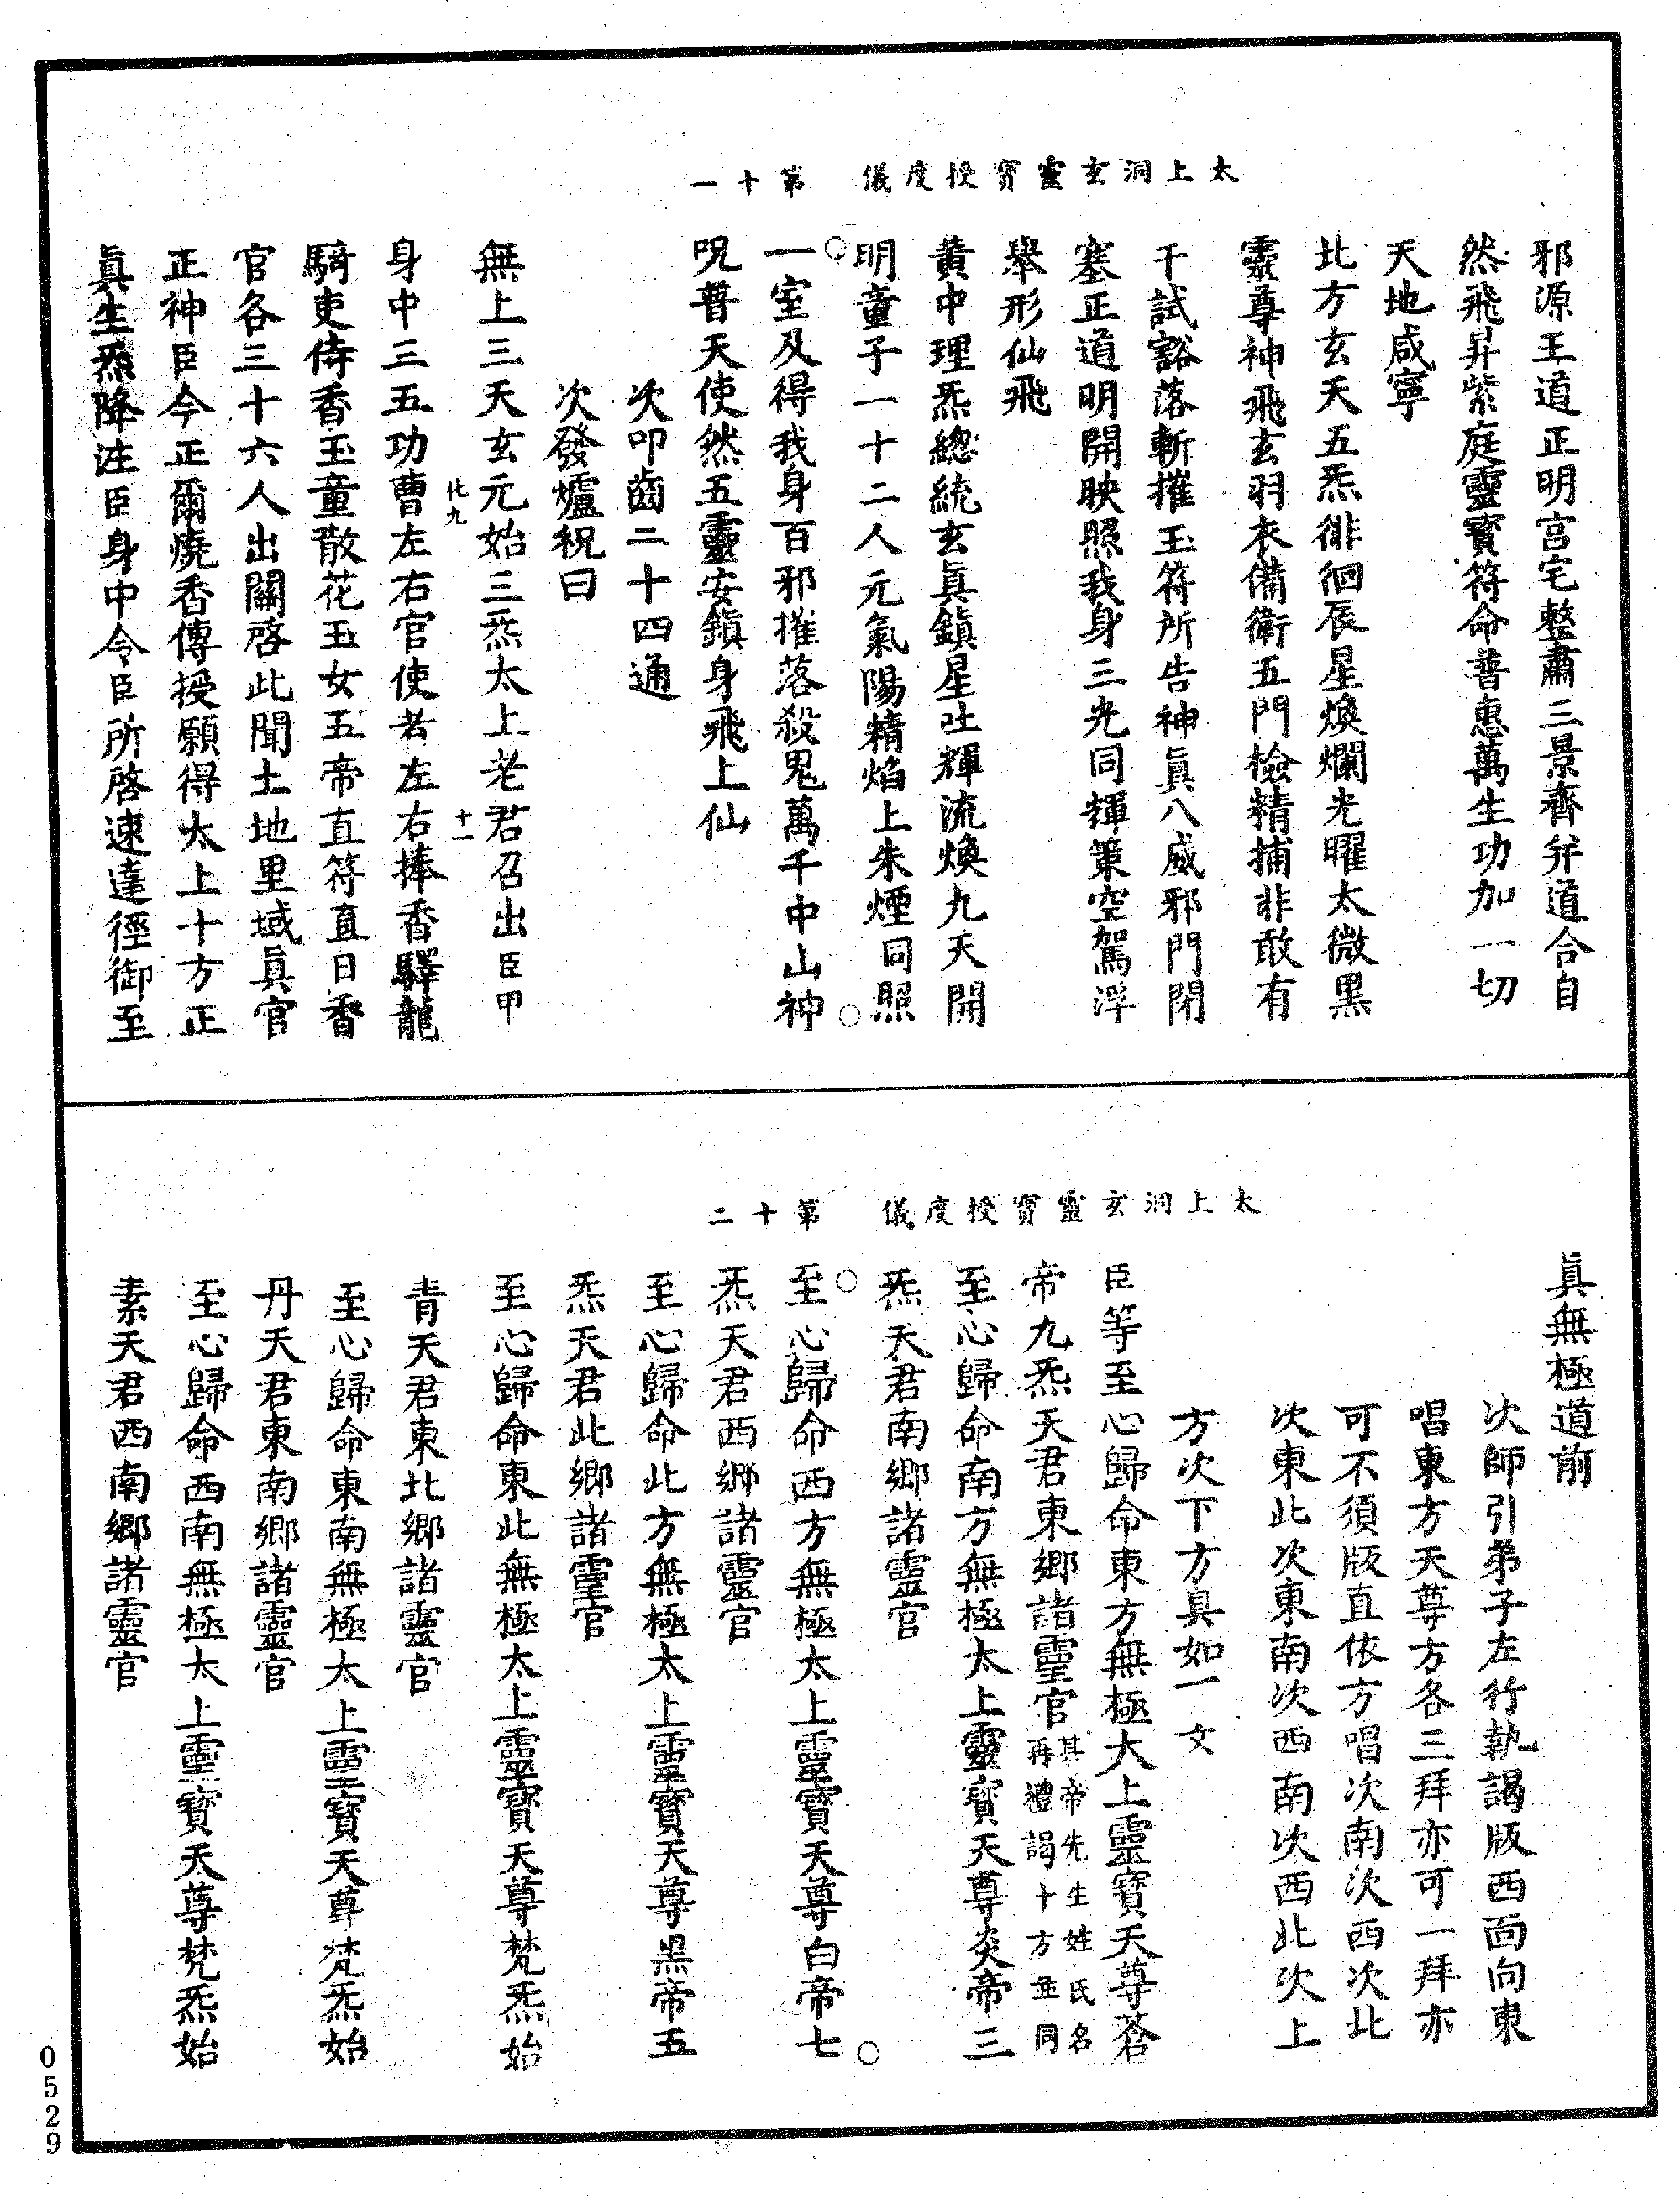 太上洞玄靈寶授度儀　第十一
邪源王道正明宫宅整肅三景齊并道合自
然飛昇紫庭靈寶符命普惠萬生功加一切
天地咸寧
北方玄天五炁徘徊辰星煥爛光曜太微黑
靈尊神飛玄羽衣備衛五門檢精捕非敢有
干試豁落斬摧玉符所告神眞八威邪門閉
塞正道明開映照我身三光同輝策空駕浮
舉形仙飛
黃中理炁總統玄眞鎭星吐輝流煥九天開
明童子一十二人元氣陽精焰上朱煙同照
一室及得我身百邪摧落殺鬼萬千中山神
呪普天使然五靈安鎭身飛上仙
次叩齒二十四通
次發爐祝曰
無上三天玄元始三炁太上老君召出臣甲
化九　十一
身中三五功曹左右官使者左右捧香驛龍
騎吏侍香玉童散花玉女五帝直符直日香
官各三十六人出關啓此聞土地里域眞官
正神臣今正爾燒香傳授願得太上十方正
眞生炁降注臣身中令臣所啓速達徑御至
太上洞玄靈寶授度儀　第十二
眞無極道前
次師引弟子左行執謁版西面向東
唱東方天尊方各三拜亦可一拜亦
可不須版直依方唱次南次西次北
次東北次東南次西南次西北次上
方次下方具如一文
臣等至心歸命東方無極大上靈寶天尊蒼
帝九炁天君東鄉諸靈官其帝先生姓氏名再禮謁十方並同
至心歸命南方無極太上靈寶天尊炎帝三
炁天君南鄉諸靈官
至心歸命西方無極太上靈寶天尊白帝七
炁天君西鄉諸靈官
至心歸命北方無極太上靈寶天尊黑帝五
炁天君北鄉諸靈官
至心歸命東北無極太上靈寶天尊梵炁始
青天君東北鄉諸靈官
至心歸命東南無極太上靈寶天尊梵炁始
丹天君東南鄉諸靈官
至心歸命西南無極太上靈寶天尊梵炁始
素天君西南鄉諸靈官
0529